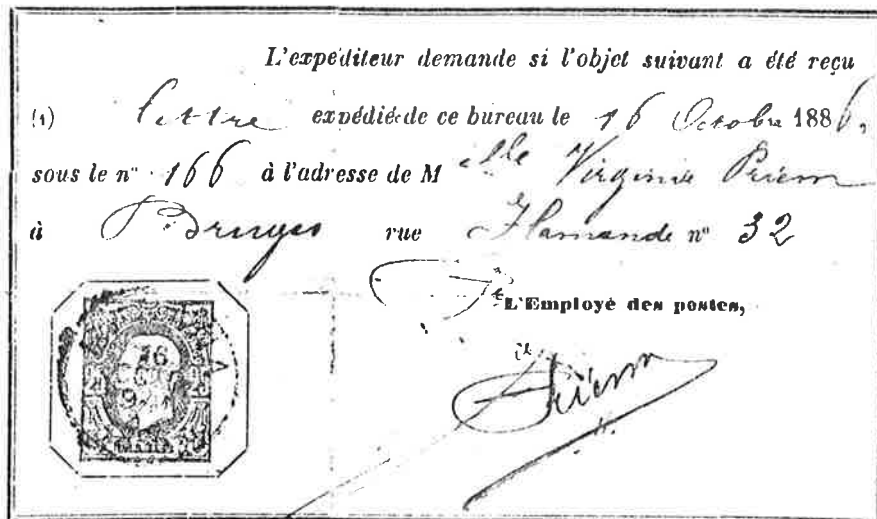 L'expéditeur demande si l'objet suivant a été reçu
(1) lettre expédié de ce bureau le 16 Octobre 1886,
sous le n° 166 à l'adresse de Melle Virginie Priem
à Bruges rue Flamande n° 32
L'Employé des postes,
Priem
16
OCT
9